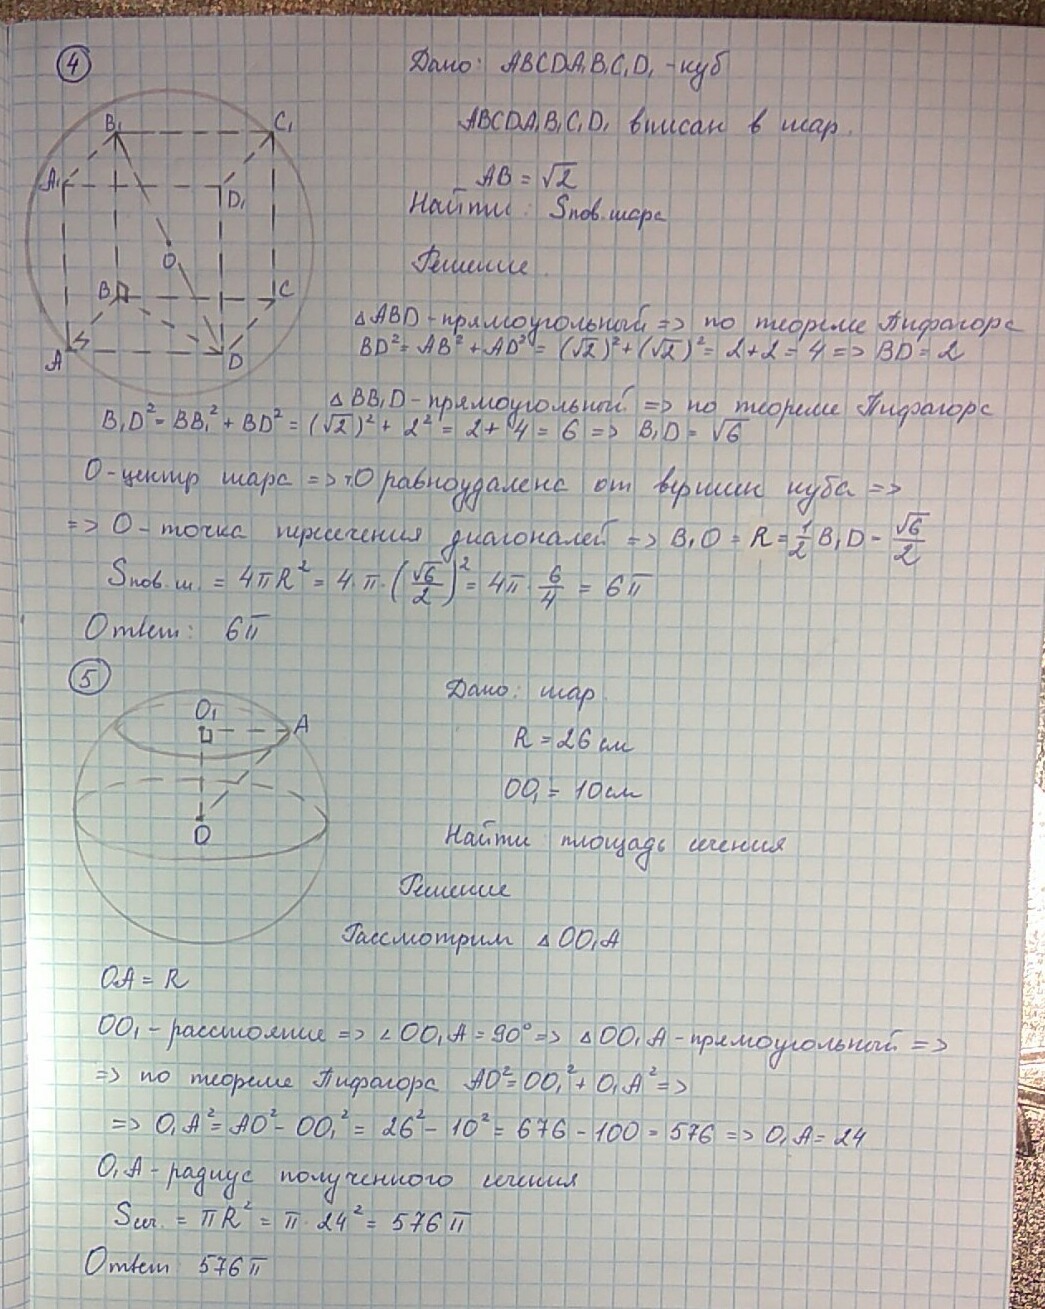 4
Дано: ABCDA₁B₁C₁D₁ - куб
ABCDA₁B₁C₁D₁ вписан в шар.
AB = √2
Найти: Sпов. шара
Решение.
B₁ C₁
A₁ D₁
O
B C
A D
△ABD - прямоугольный => по теореме Пифагора
BD² = AB² + AD² = (√2)² + (√2)² = 2 + 2 = 4 => BD = 2
△BB₁D - прямоугольный => по теореме Пифагора
B₁D² = BB₁² + BD² = (√2)² + 2² = 2 + 4 = 6 => B₁D = √6
O - центр шара => т.O равноудалена от вершин куба =>
=> O - точка пересечения диагоналей => B₁O = R = 1/2 B₁D = √6/2
Sпов. ш. = 4πR² = 4·π·(√6/2)² = 4π · 6/4 = 6π
Ответ: 6π
5
Дано: шар
R = 26 см
OO₁ = 10 см
Найти площадь сечения
O₁ A
O
Решение
Рассмотрим △OO₁A
OA = R
OO₁ - расстояние => ∠OO₁A = 90° => △OO₁A - прямоугольный =>
=> по теореме Пифагора AO² = OO₁² + O₁A² =>
=> O₁A² = AO² - OO₁² = 26² - 10² = 676 - 100 = 576 => O₁A = 24
O₁A - радиус полученного сечения
Sсеч. = πR² = π · 24² = 576π
Ответ 576π